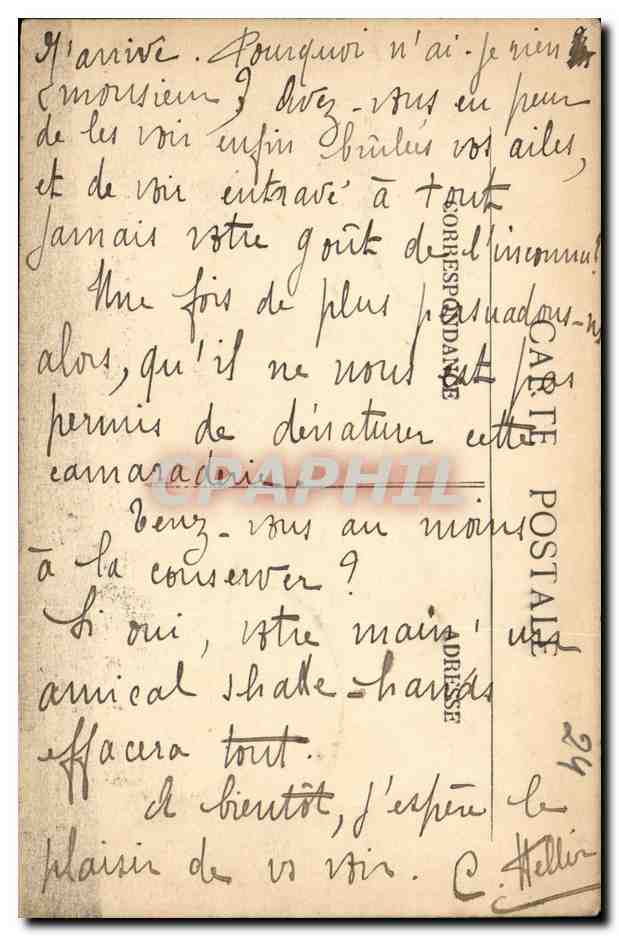 M'arrive. Pourquoi n'ai-je rien
(monsieur)? Avez-vous eu peur
de les voir enfin brûlées vos ailes,
et de voir entravé à tout
jamais votre goût de l'inconnu?
Une fois de plus persuadons-ns
alors, qu'il ne nous est pas
permis de dénaturer cette
camaraderie.
Tenez-vous au moins
à la conserver?
Si oui, votre main! un
amical shake-hands
effacera tout.
A bientôt, j'espère le
plaisir de vs voir. C. Hellir
CARTE POSTALE
CORRESPONDANCE
ADRESSE
24
CPAPHIL